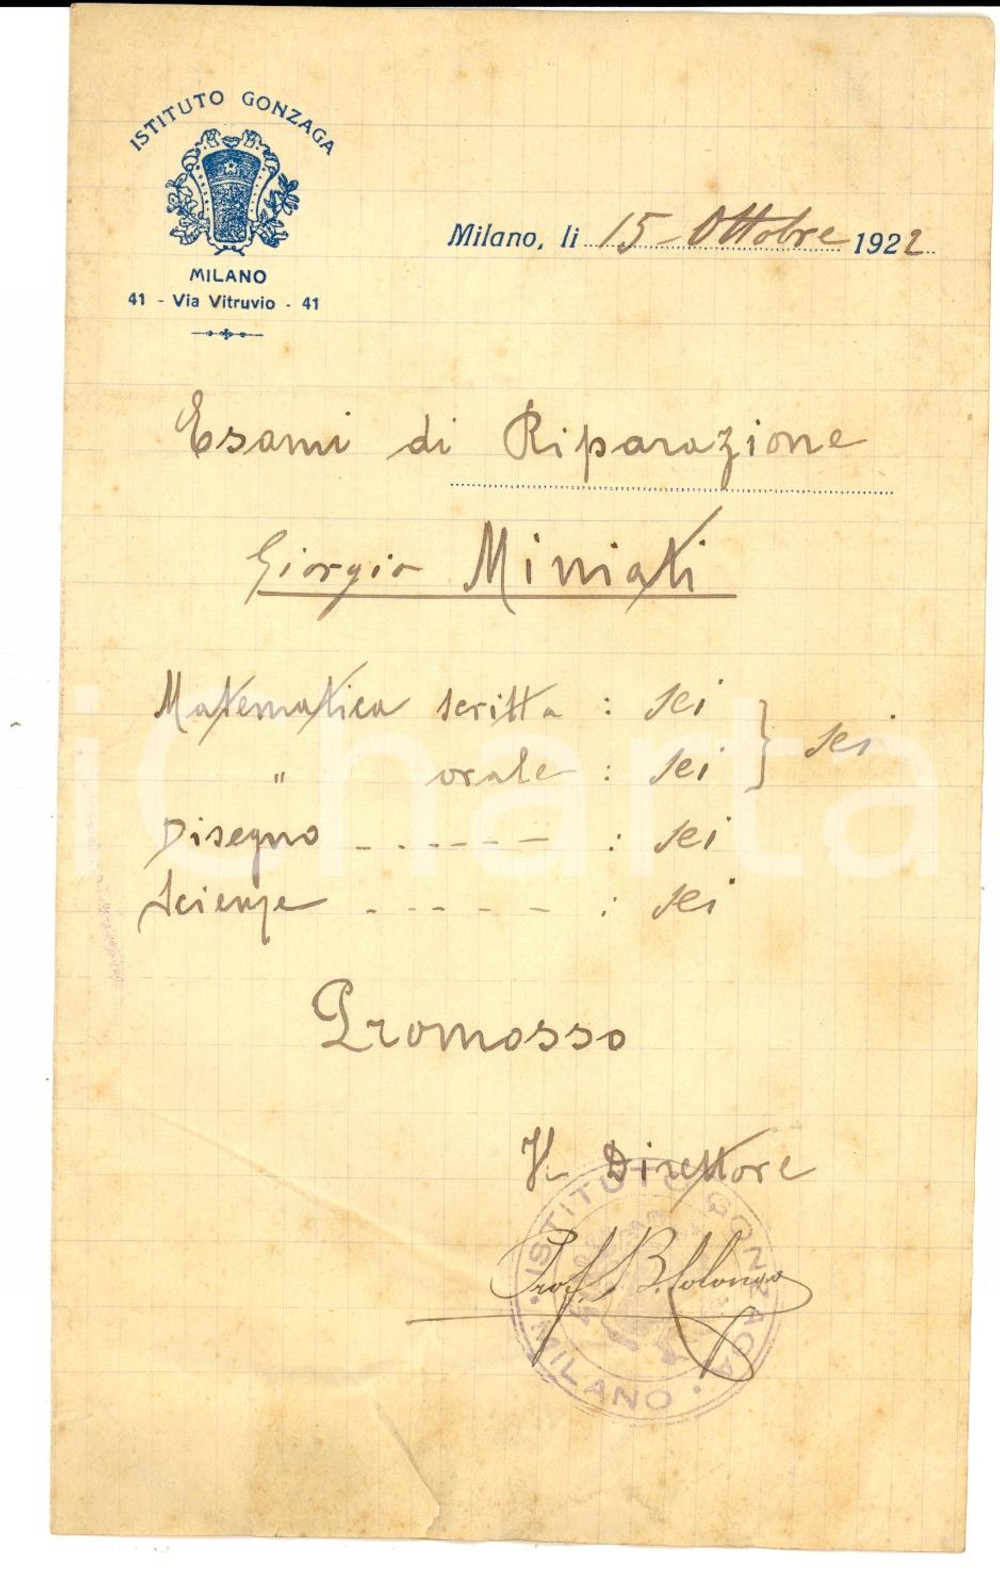 ISTITUTO GONZAGA
MILANO
41 - Via Vitruvio - 41
Milano, li 15 - Ottobre 1922
Esami di Riparazione
Giorgio Miniati
Matematica scritta : sei } sei
" orale : sei
Disegno - - - - - - : sei
Scienze - - - - - : sei
Promosso
Il Direttore
Prof. B.
ISTITUTO GONZAGA
• MILANO •
iCharta